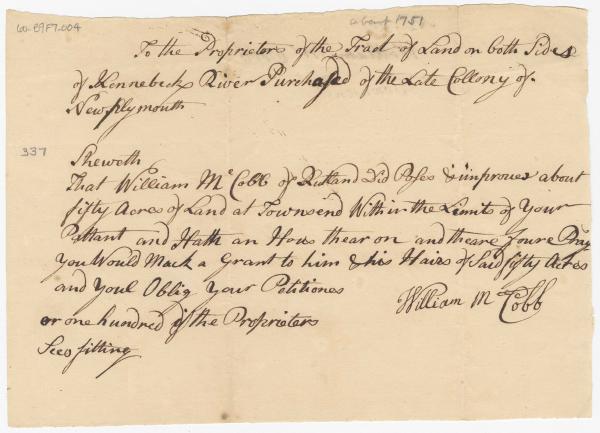 60-E9F7-004
about 1751
To the Proprietors of the Tract of Land on both Sides
of Kennebeck River Purchased of the Late Collony of
New Plymouth
337
Sheweth
That William Mc Cobb of Rutland Did Poses & improves about
fifty Acres of Land at Townsend With in the Limits of Your
Pattant and Hath an Hous thear on and theare foure Pray
You Would Mack a Grant to him & his Hairs of Said fifty Acres
and Youl Oblig Your Petitiones
William Mc Cobb
or one hundred if the Proprieters
Sees fitting